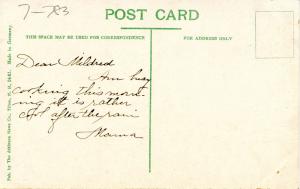 7-783
POST CARD
THIS SPACE MAY BE USED FOR CORRESPONDENCE
FOR ADDRESS ONLY
Dear Mildred
Am busy
cooking this morn-
ing it is rather
cool after the rain
Mama
Pub. by The Address News Co., Made in Germany.